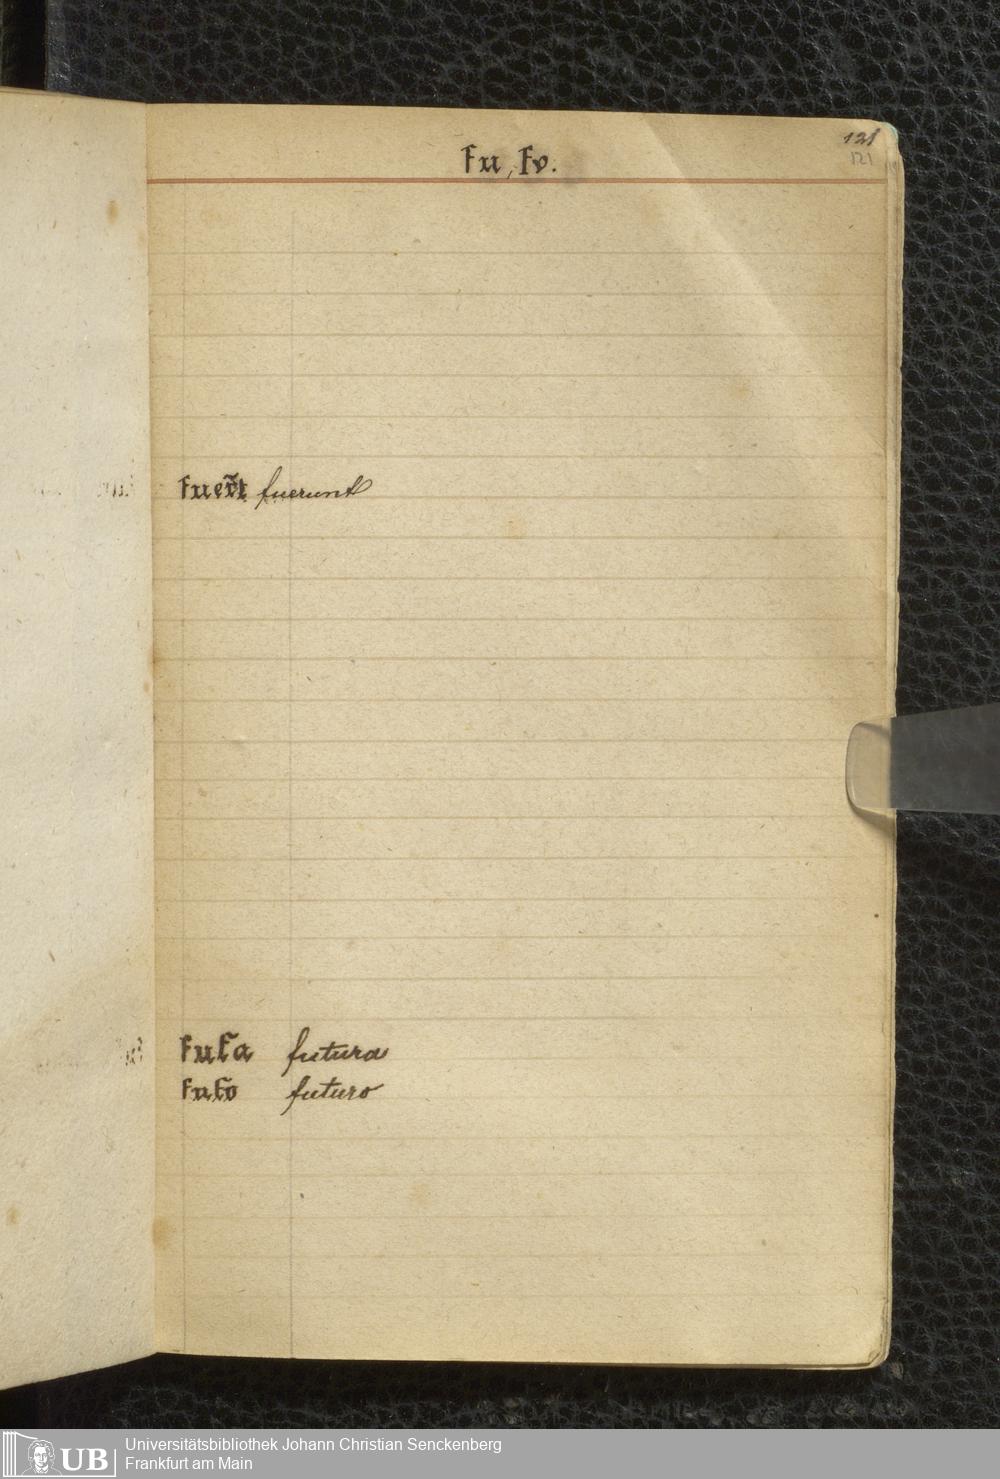 121
121
fu, fv.
fuer̃t fuerunt
futa futura
futo futuro
UB
Universitätsbibliothek Johann Christian Senckenberg
Frankfurt am Main